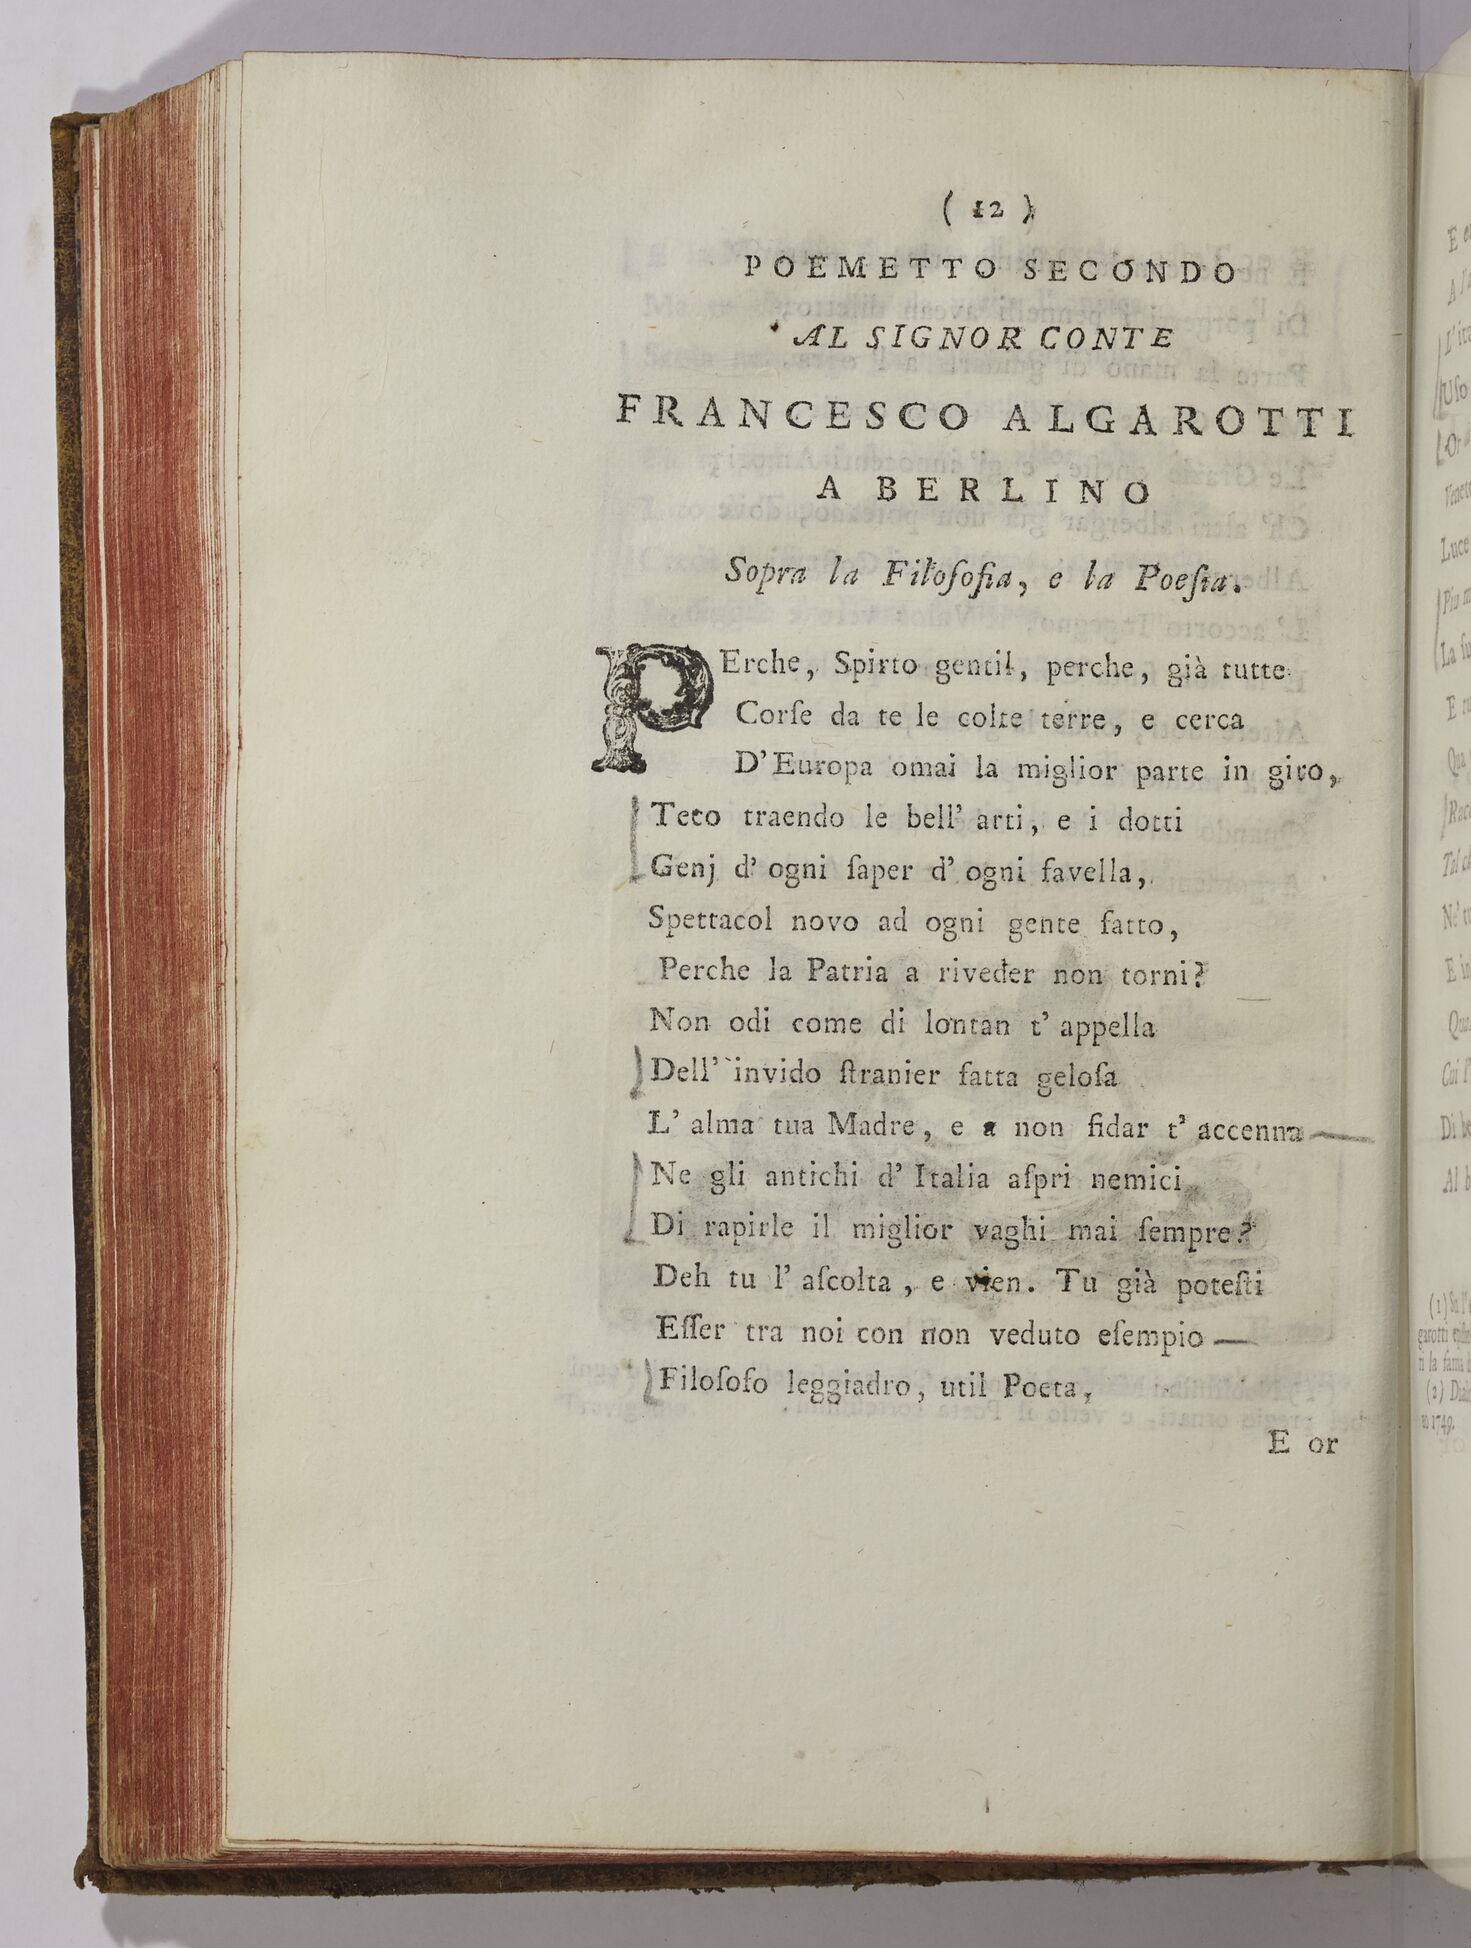 ( 12 )
POEMETTO SECONDO
AL SIGNOR CONTE
FRANCESCO ALGAROTTI
A BERLINO
Sopra la Filoſofia, e la Poeſia.
PErche, Spirto gentil, perche, già tutte
Corſe da te le colte terre, e cerca
D'Europa omai la miglior parte in giro,
Teco traendo le bell' arti, e i dotti
Genj d' ogni ſaper d' ogni favella,
Spettacol novo ad ogni gente fatto,
Perche la Patria a riveder non torni?
Non odi come di lontan t' appella
Dell' invido ſtranier fatta geloſa
L' alma tua Madre, e a non fidar t' accenna
Ne gli antichi d' Italia aſpri nemici
Di rapirle il miglior vaghi mai ſempre?
Deh tu l' aſcolta, e vien. Tu già poteſti
Eſſer tra noi con non veduto eſempio
Filoſofo leggiadro, util Poeta,
E or